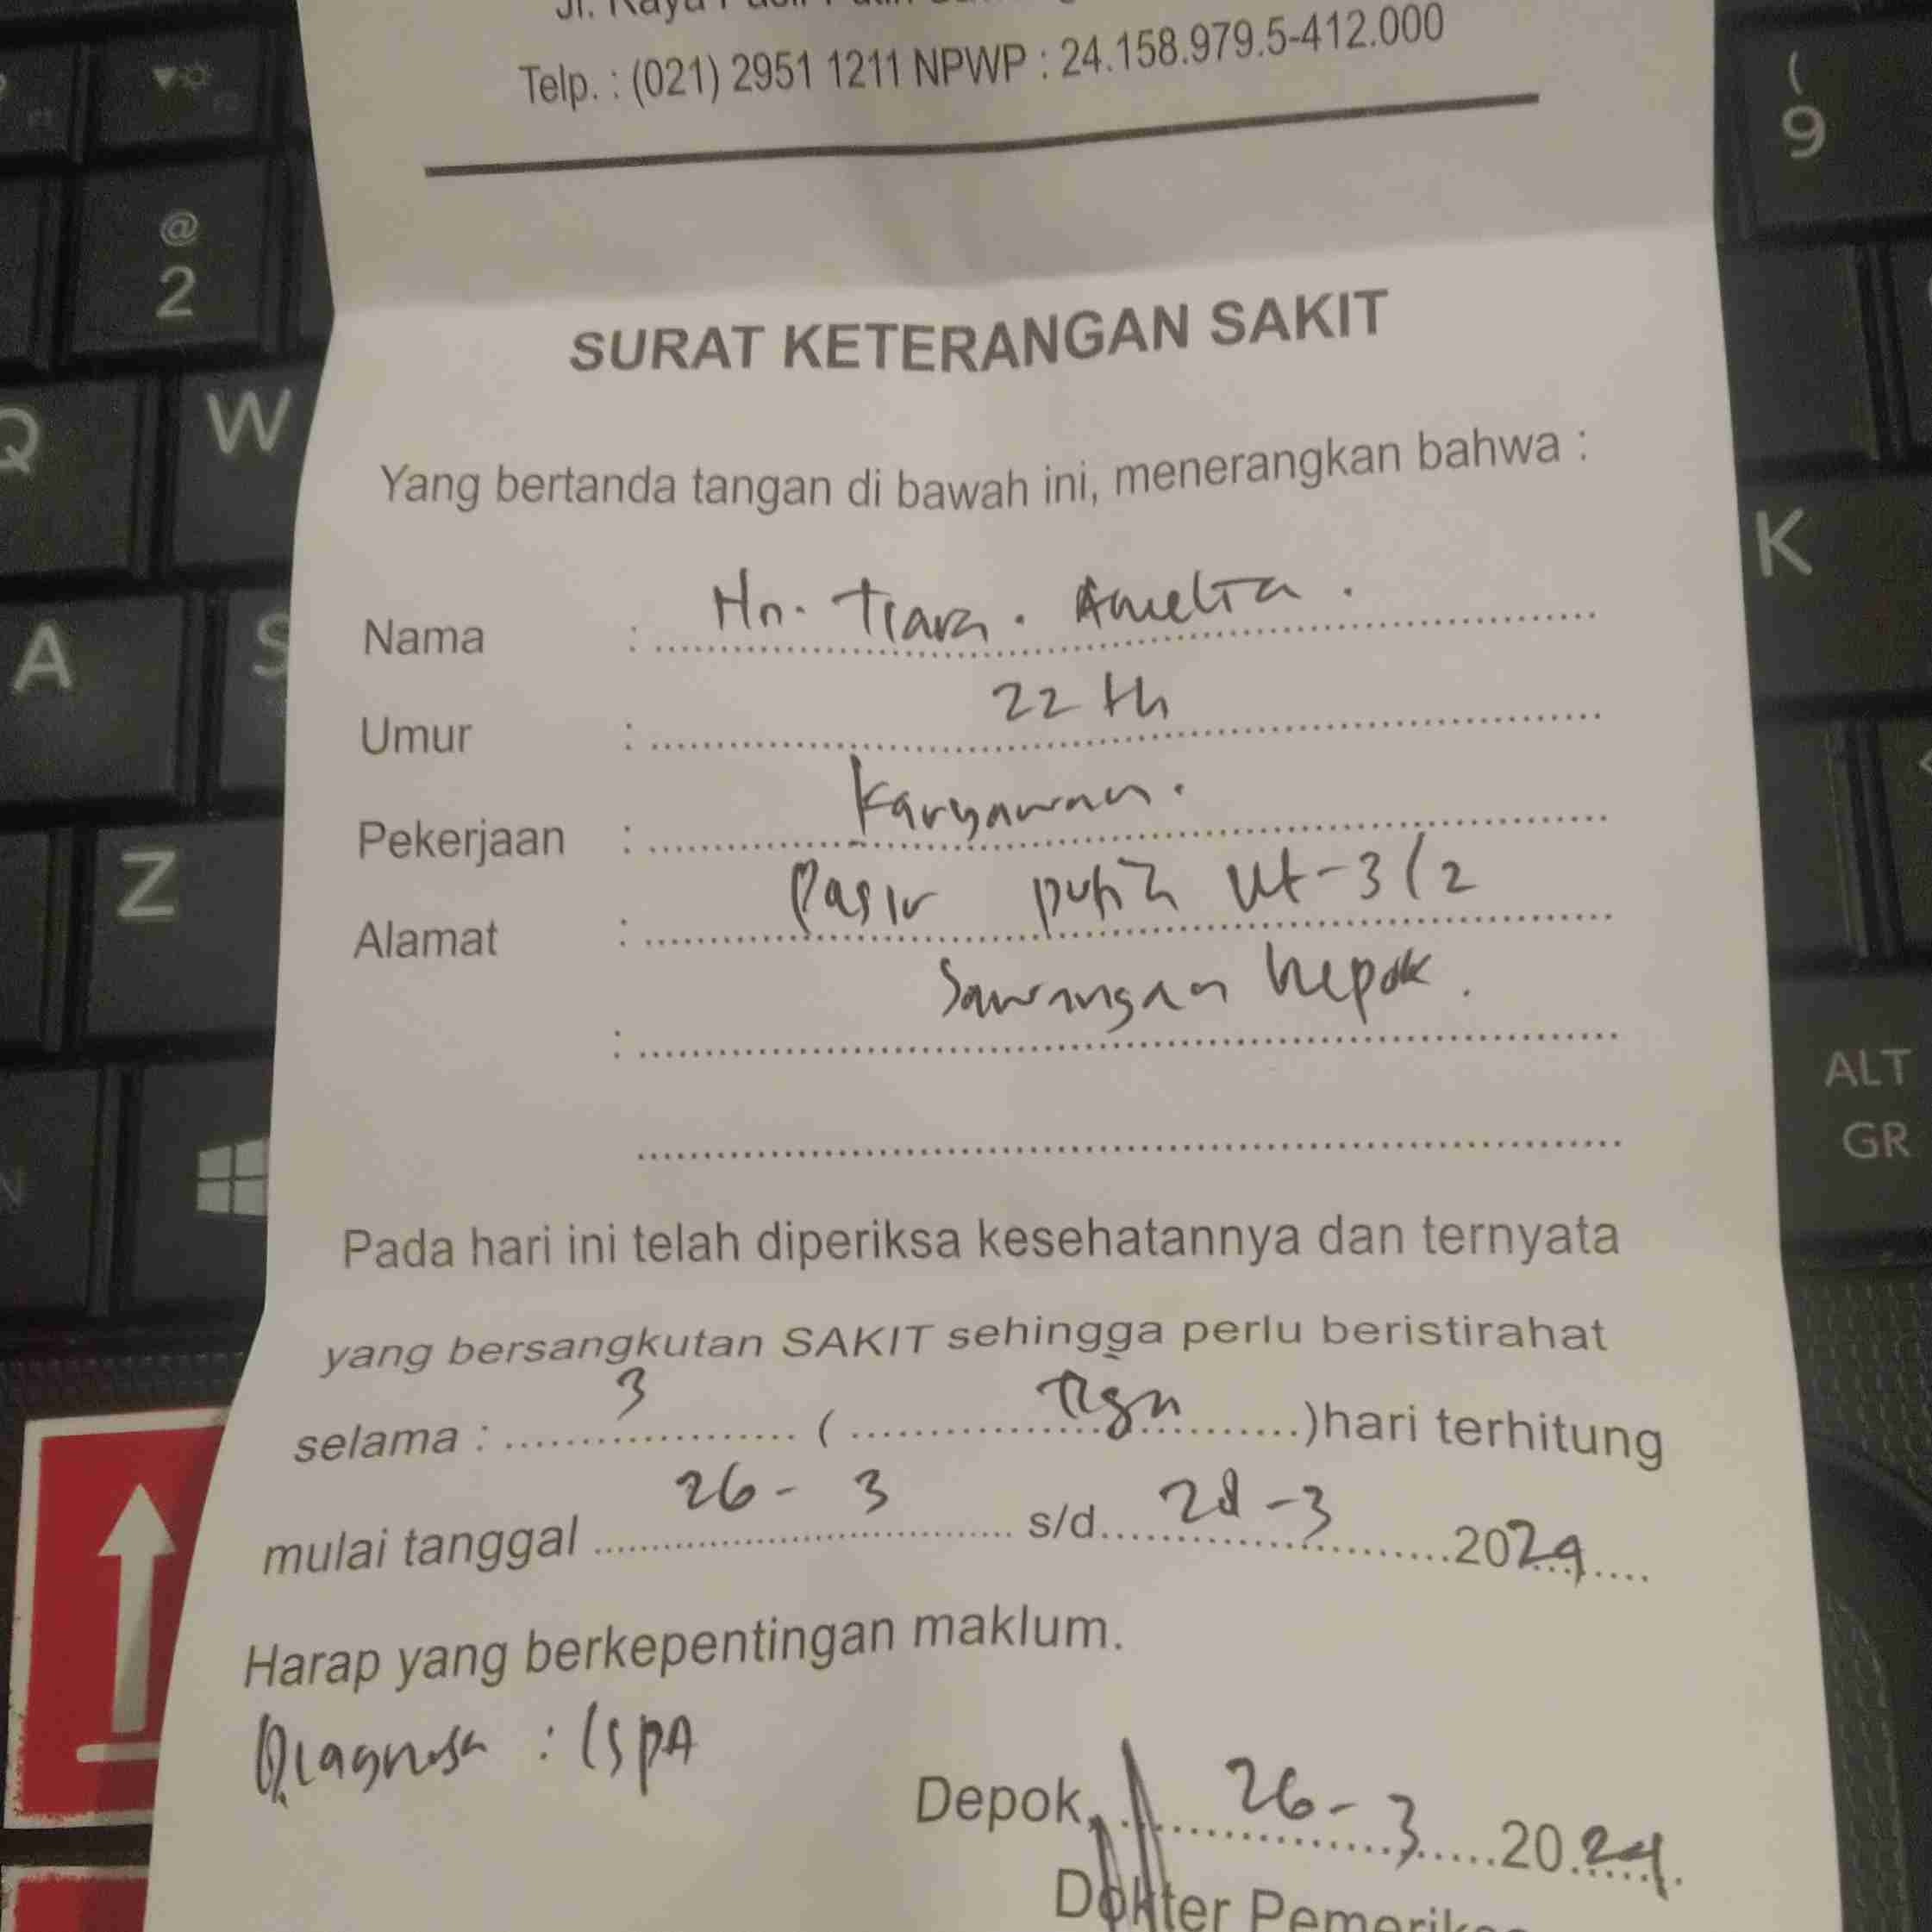 Jl. Raya Pasir Putih
Telp. : (021) 2951 1211 NPWP : 24.158.979.5-412.000
SURAT KETERANGAN SAKIT
Yang bertanda tangan di bawah ini, menerangkan bahwa :
Nama : Nn. Tiara. Amelia.
Umur : 22 th
Pekerjaan : Karyawan.
Alamat : Pasir putih rt-3/2
: Sawangan Depok.
Pada hari ini telah diperiksa kesehatannya dan ternyata
yang bersangkutan SAKIT sehingga perlu beristirahat
selama : 3 ( tiga )hari terhitung
mulai tanggal 26-3 s/d 28-3 2024
Harap yang berkepentingan maklum.
Diagnosa : ISPA
Depok, 26-3 2024.
Dokter
@
2
(
9
Q
W
K
A
S
Z
ALT
GR
N